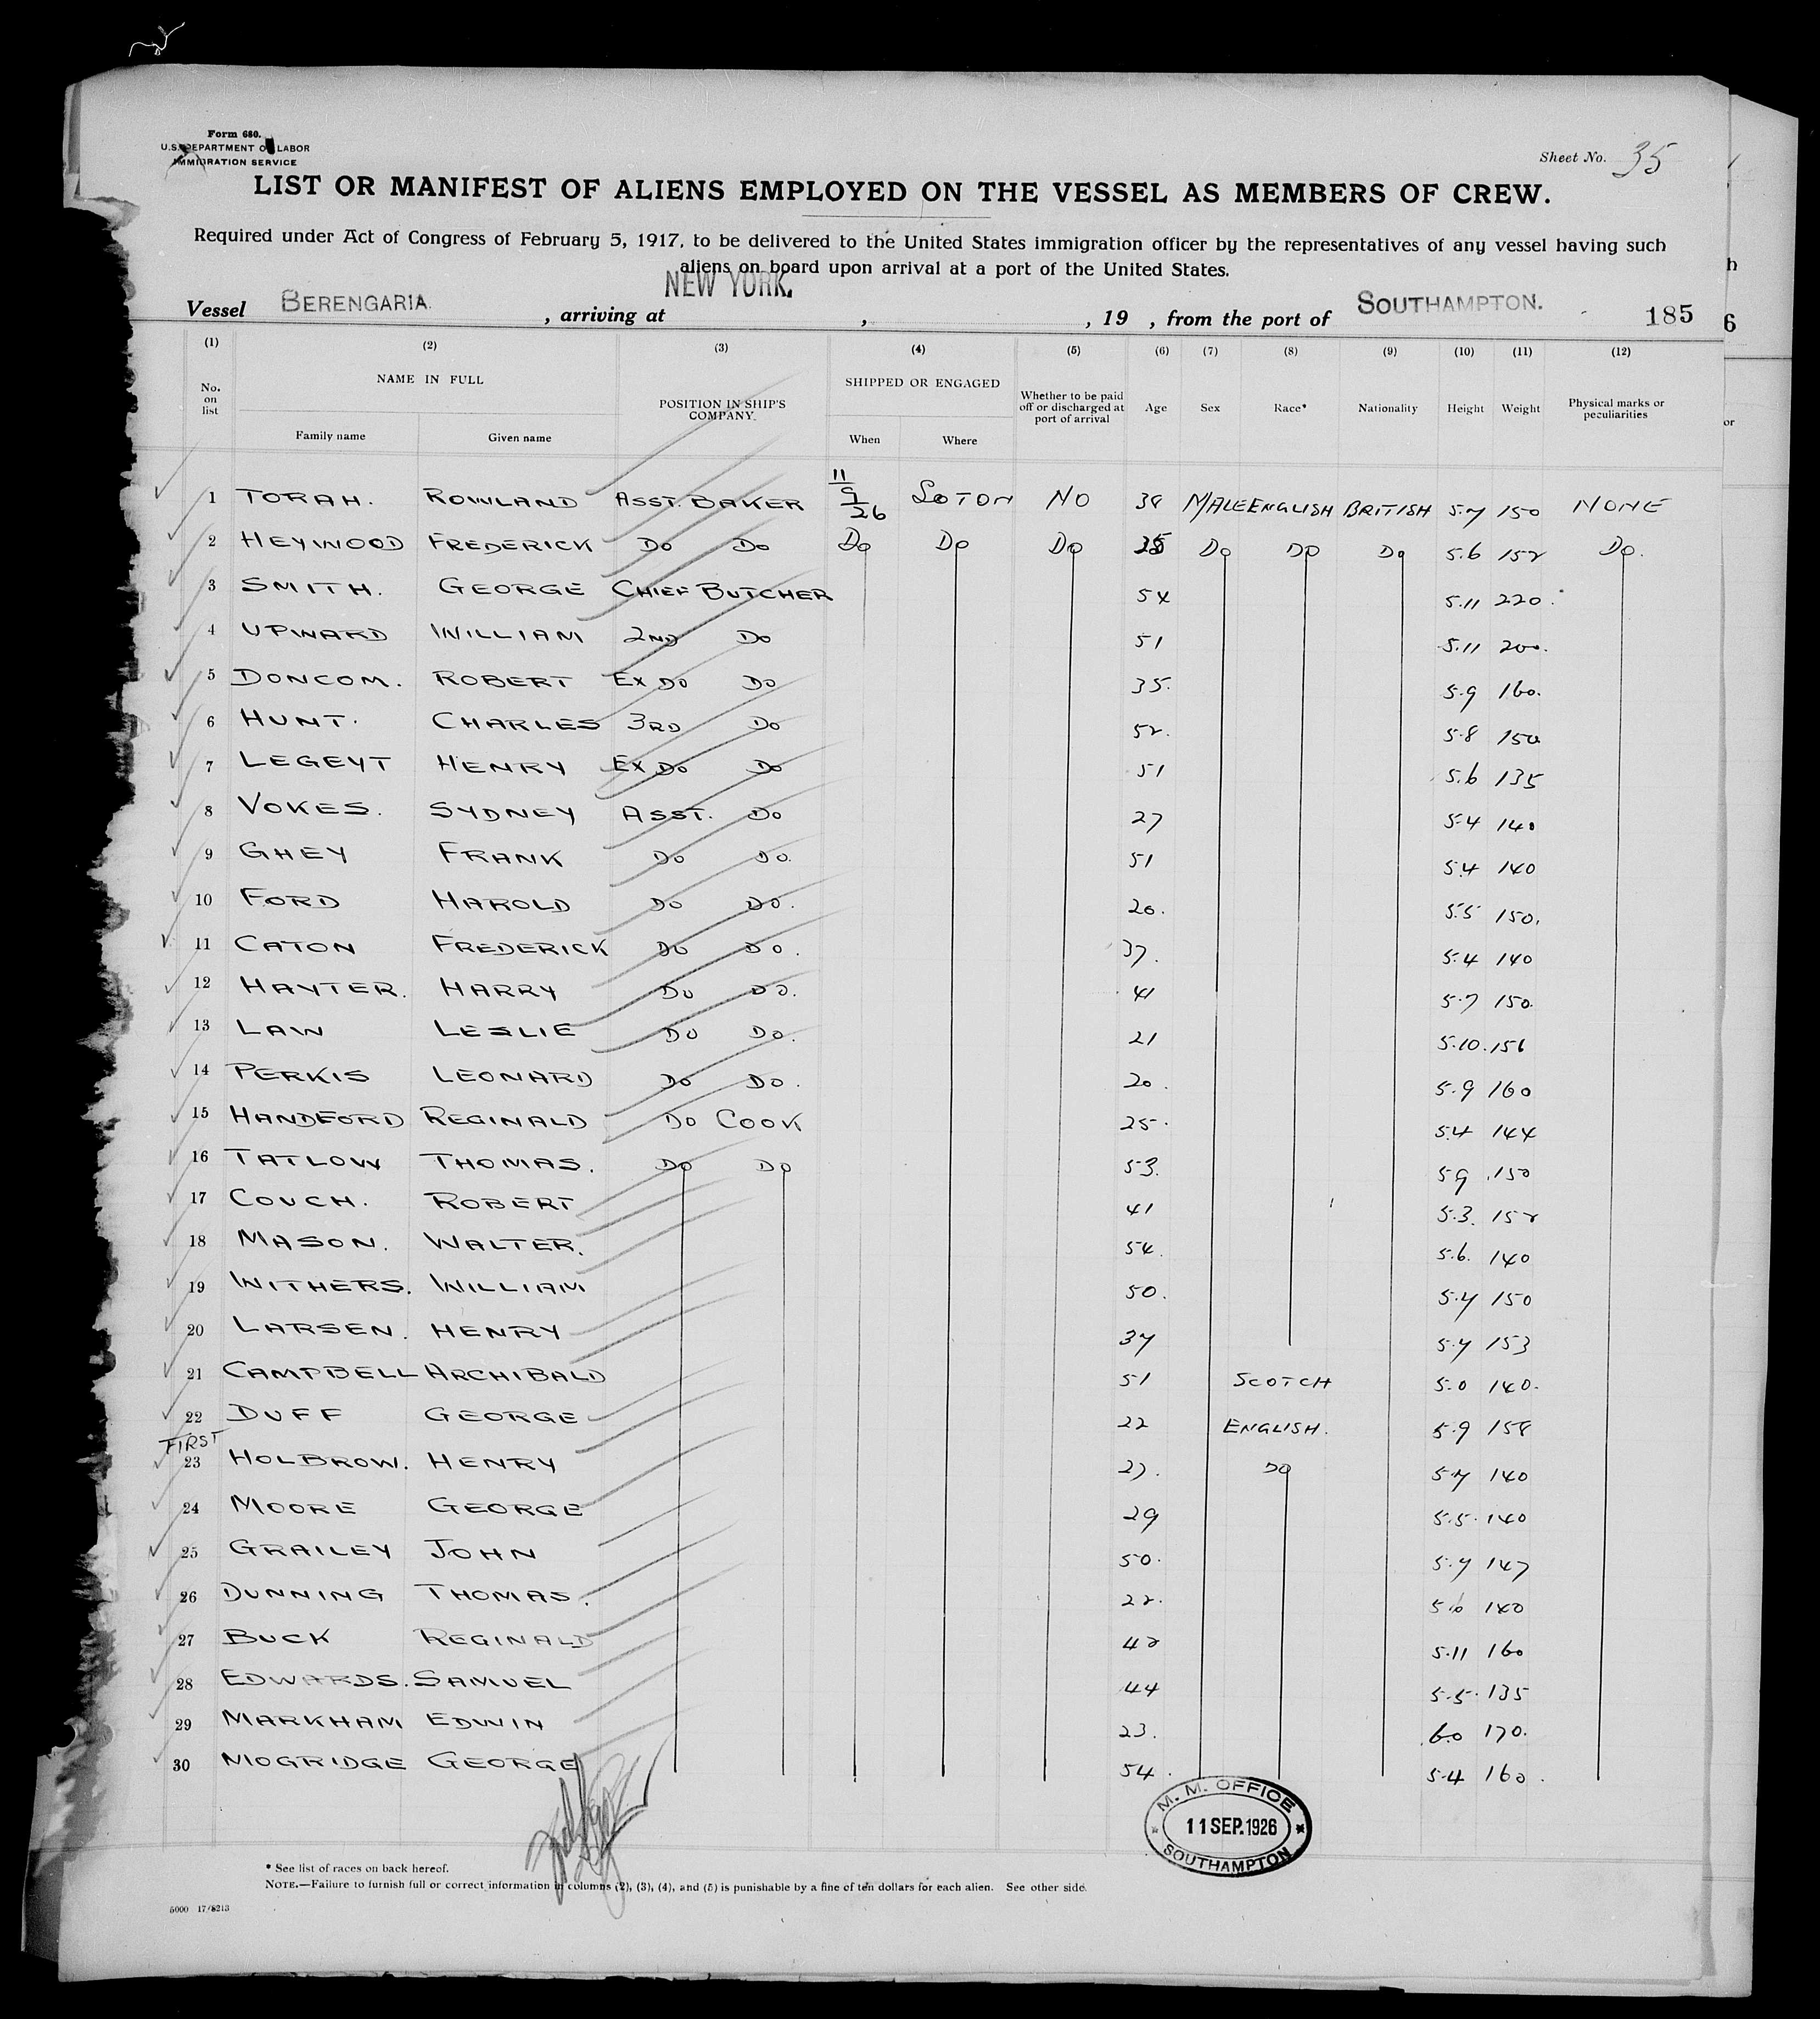 Form 680.
U.S. DEPARTMENT OF LABOR
IMMIGRATION SERVICE
Sheet No. 35
LIST OR MANIFEST OF ALIENS EMPLOYED ON THE VESSEL AS MEMBERS OF CREW.
Required under Act of Congress of February 5, 1917, to be delivered to the United States immigration officer by the representatives of any vessel having such
aliens on board upon arrival at a port of the United States.
Vessel BERENGARIA, arriving at NEW YORK. , , 19 , from the port of SOUTHAMPTON. 185
(1) (2) (3) (4) (5) (6) (7) (8) (9) (10) (11) (12)
No. on list NAME IN FULL Family name Given name POSITION IN SHIP'S COMPANY. SHIPPED OR ENGAGED When Where Whether to be paid off or discharged at port of arrival Age Sex Race* Nationality Height Weight Physical marks or peculiarities
1 TORAH. ROWLAND ASST. BAKER 11/9/26 SOTON NO 38 MALE ENGLISH BRITISH 5.7 150 NONE
2 HEYWOOD FREDERICK DO DO DO DO DO 35 DO DO DO 5.6 152 DO.
3 SMITH. GEORGE CHIEF BUTCHER 54 5.11 220.
4 UPWARD WILLIAM 2ND DO 51 5.11 200.
5 DONCOM. ROBERT EX DO DO 35. 5.9 160.
6 HUNT. CHARLES 3RD DO 52. 5.8 150
7 LEGEYT HENRY EX DO DO 51 5.6 135
8 VOKES. SYDNEY ASST. DO 27 5.4 140
9 GHEY FRANK DO DO. 51 5.4 140
10 FORD HAROLD DO DO. 20. 5.5 150.
11 CATON FREDERICK DO DO. 37. 5.4 140
12 HAYTER. HARRY DO DO. 41 5.7 150.
13 LAW LESLIE DO DO. 21 5.10. 156
14 PERKIS LEONARD DO DO. 20. 5.9 160
15 HANDFORD REGINALD DO COOK 25. 5.4 144
16 TATLOW THOMAS. DO DO 53. 5.9 150
17 COUCH. ROBERT 41 5.3. 152
18 MASON. WALTER. 54. 5.6. 140
19 WITHERS. WILLIAM 50. 5.7 150
20 LARSEN. HENRY 37 5.7 153
21 CAMPBELL ARCHIBALD 51 SCOTCH 5.0 140.
22 DUFF GEORGE 22 ENGLISH. 5.9 158
FIRST
23 HOLBROW. HENRY 27. DO 5.7 140
24 MOORE GEORGE 29 5.5. 140
25 GRAILEY JOHN 50. 5.7 147
26 DUNNING THOMAS. 22. 140
27 BUCK REGINALD 42 5.11 160
28 EDWARDS. SAMUEL 44 5.5. 135
29 MARKHAM EDWIN 23. 6.0 170.
30 MOGRIDGE GEORGE 54. 5.4 160.
M. M. OFFICE
11 SEP. 1926
SOUTHAMPTON
* See list of races on back hereof.
NOTE.—Failure to furnish full or correct information in columns (2), (3), (4), and (5) is punishable by a fine of ten dollars for each alien. See other side.
5000 17/8213
6